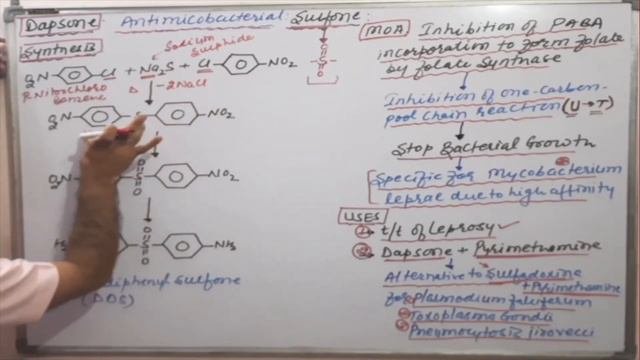 Dapsone Antimicobacterial: Sulfone:
Synthesis
Sodium Sulphide
O2N Cl + Na2S + Cl NO2
P. Nitrochloro benzene
Δ -2NaCl
O2N NO2
O=S=O NO2
O=S=O NH2
diphenyl Sulfone
(DDS)
MOA Inhibition of PABA
incorporation to form folate
by folate Synthase
Inhibition of one-carbon-
pool Chain reaction (U→T)
Stop Bacterial Growth
Specific for mycobacterium
leprae due to high affinity
USES
1 t/t of leprosy
2 Dapsone + Pyrimethamine
Alternative to Sulfadoxine
+ Pyrimethamine
for Plasmodium falciferum
Toxoplasma Gondii
Pneumocytosis Jirovecci